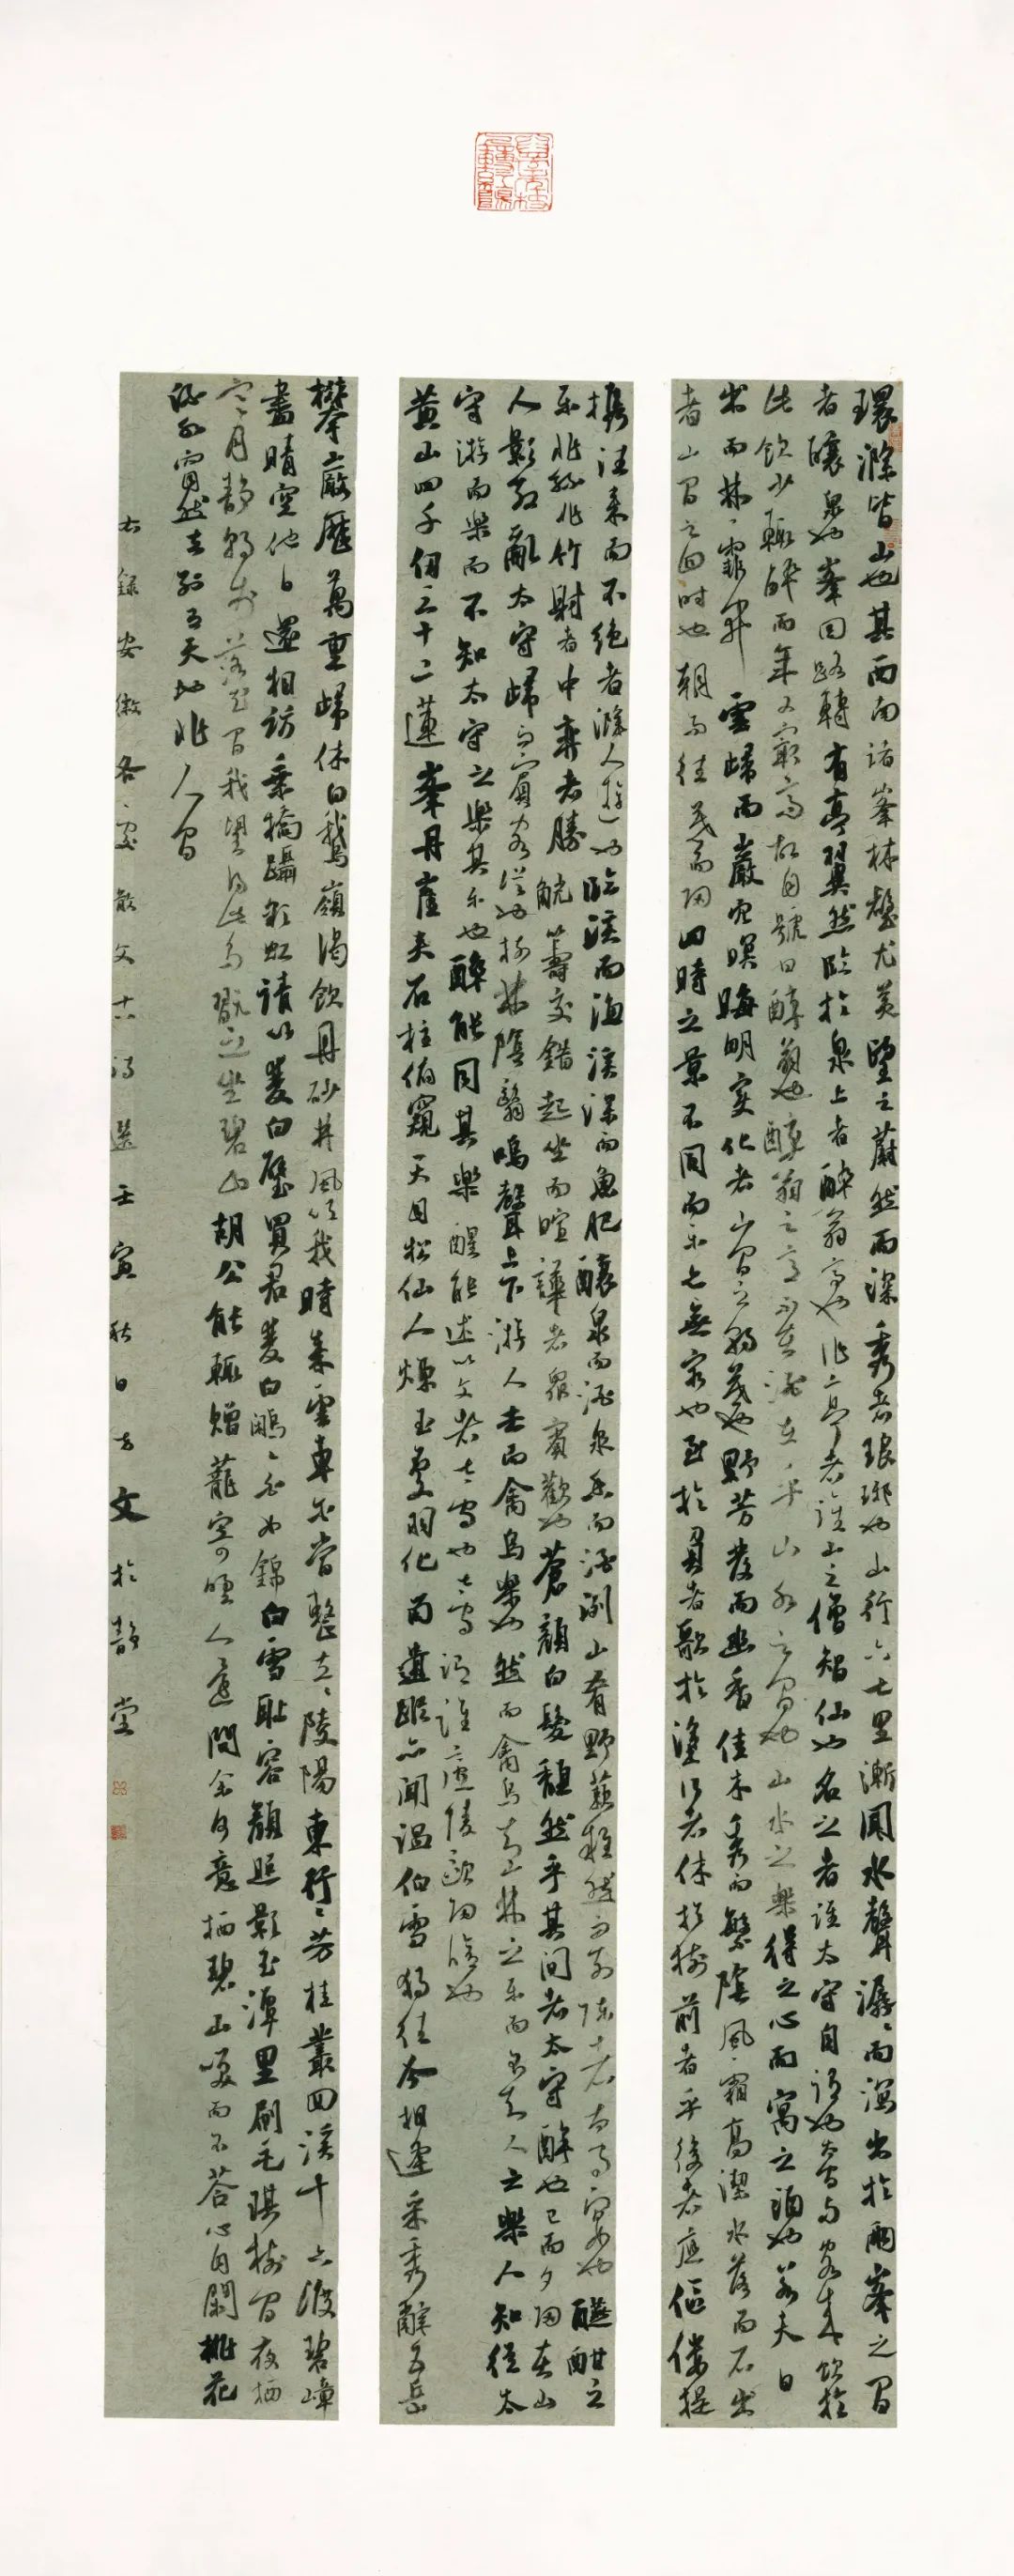 環滁皆山也其西南諸峯林壑尤美望之蔚然而深秀者琅琊也山行六七里漸聞水聲潺〻而瀉出於兩峯之間
者釀泉也峯回路轉有亭翼然臨於泉上者醉翁亭也作亭者誰山之僧智仙也名之者誰太守自謂也太守與客來飲於
此飲少輒醉而年又最高故自號曰醉翁也醉翁之意不在酒在乎山水之間也山水之樂得之心而寓之酒也若夫日
出而林霏開雲歸而巖穴暝晦明變化者山間之朝暮也野芳發而幽香佳木秀而繁陰風霜高潔水落而石出
者山間之四時也朝而往暮而歸四時之景不同而樂亦無窮也至於負者歌於塗行者休於樹前者呼後者應傴僂提
攜往來而不絕者滁人遊也臨溪而漁溪深而魚肥釀泉而酒泉香而酒洌山肴野蔌雜然而前陳者太守宴也醼酣之
樂非絲非竹射者中弈者勝觥籌交錯起坐而喧譁者眾賓歡也蒼顏白髮頹然乎其間者太守醉也已而夕陽在山
人影散亂太守歸而賓客從也樹林陰翳鳴聲上下游人去而禽鳥樂也然而禽鳥知山林之樂而不知人之樂人知從太
守游而樂而不知太守之樂其樂也醉能同其樂醒能述以文者太守也太守謂誰廬陵歐陽修也
黃山四千仞三十二蓮峯丹崖夾石柱伯窺天目松仙人煉玉處羽化留遺蹤亦聞溫伯雪獨往今相逢采秀辭五岳
攀巖歷萬重歸休白鵝嶺渴飲丹砂井風吹我時來雲車爾當整去〻陵陽東行〻芳桂叢回溪十六渡碧嶂
盡晴空他日還相訪乘橋躡彩虹請以雙白璧買君雙白鷴〻白如錦白雪恥容顏照影玉潭里刷毛琪樹間夜栖
寒月靜朝步落花間我望得此鳥翫之坐碧山胡公能輒贈蘢寄野人還問余何意栖碧山笑而不答心自閑桃花
流水窅然去別有天地非人間
右錄安徽各家散文古詩選壬寅秋日方文於靜堂